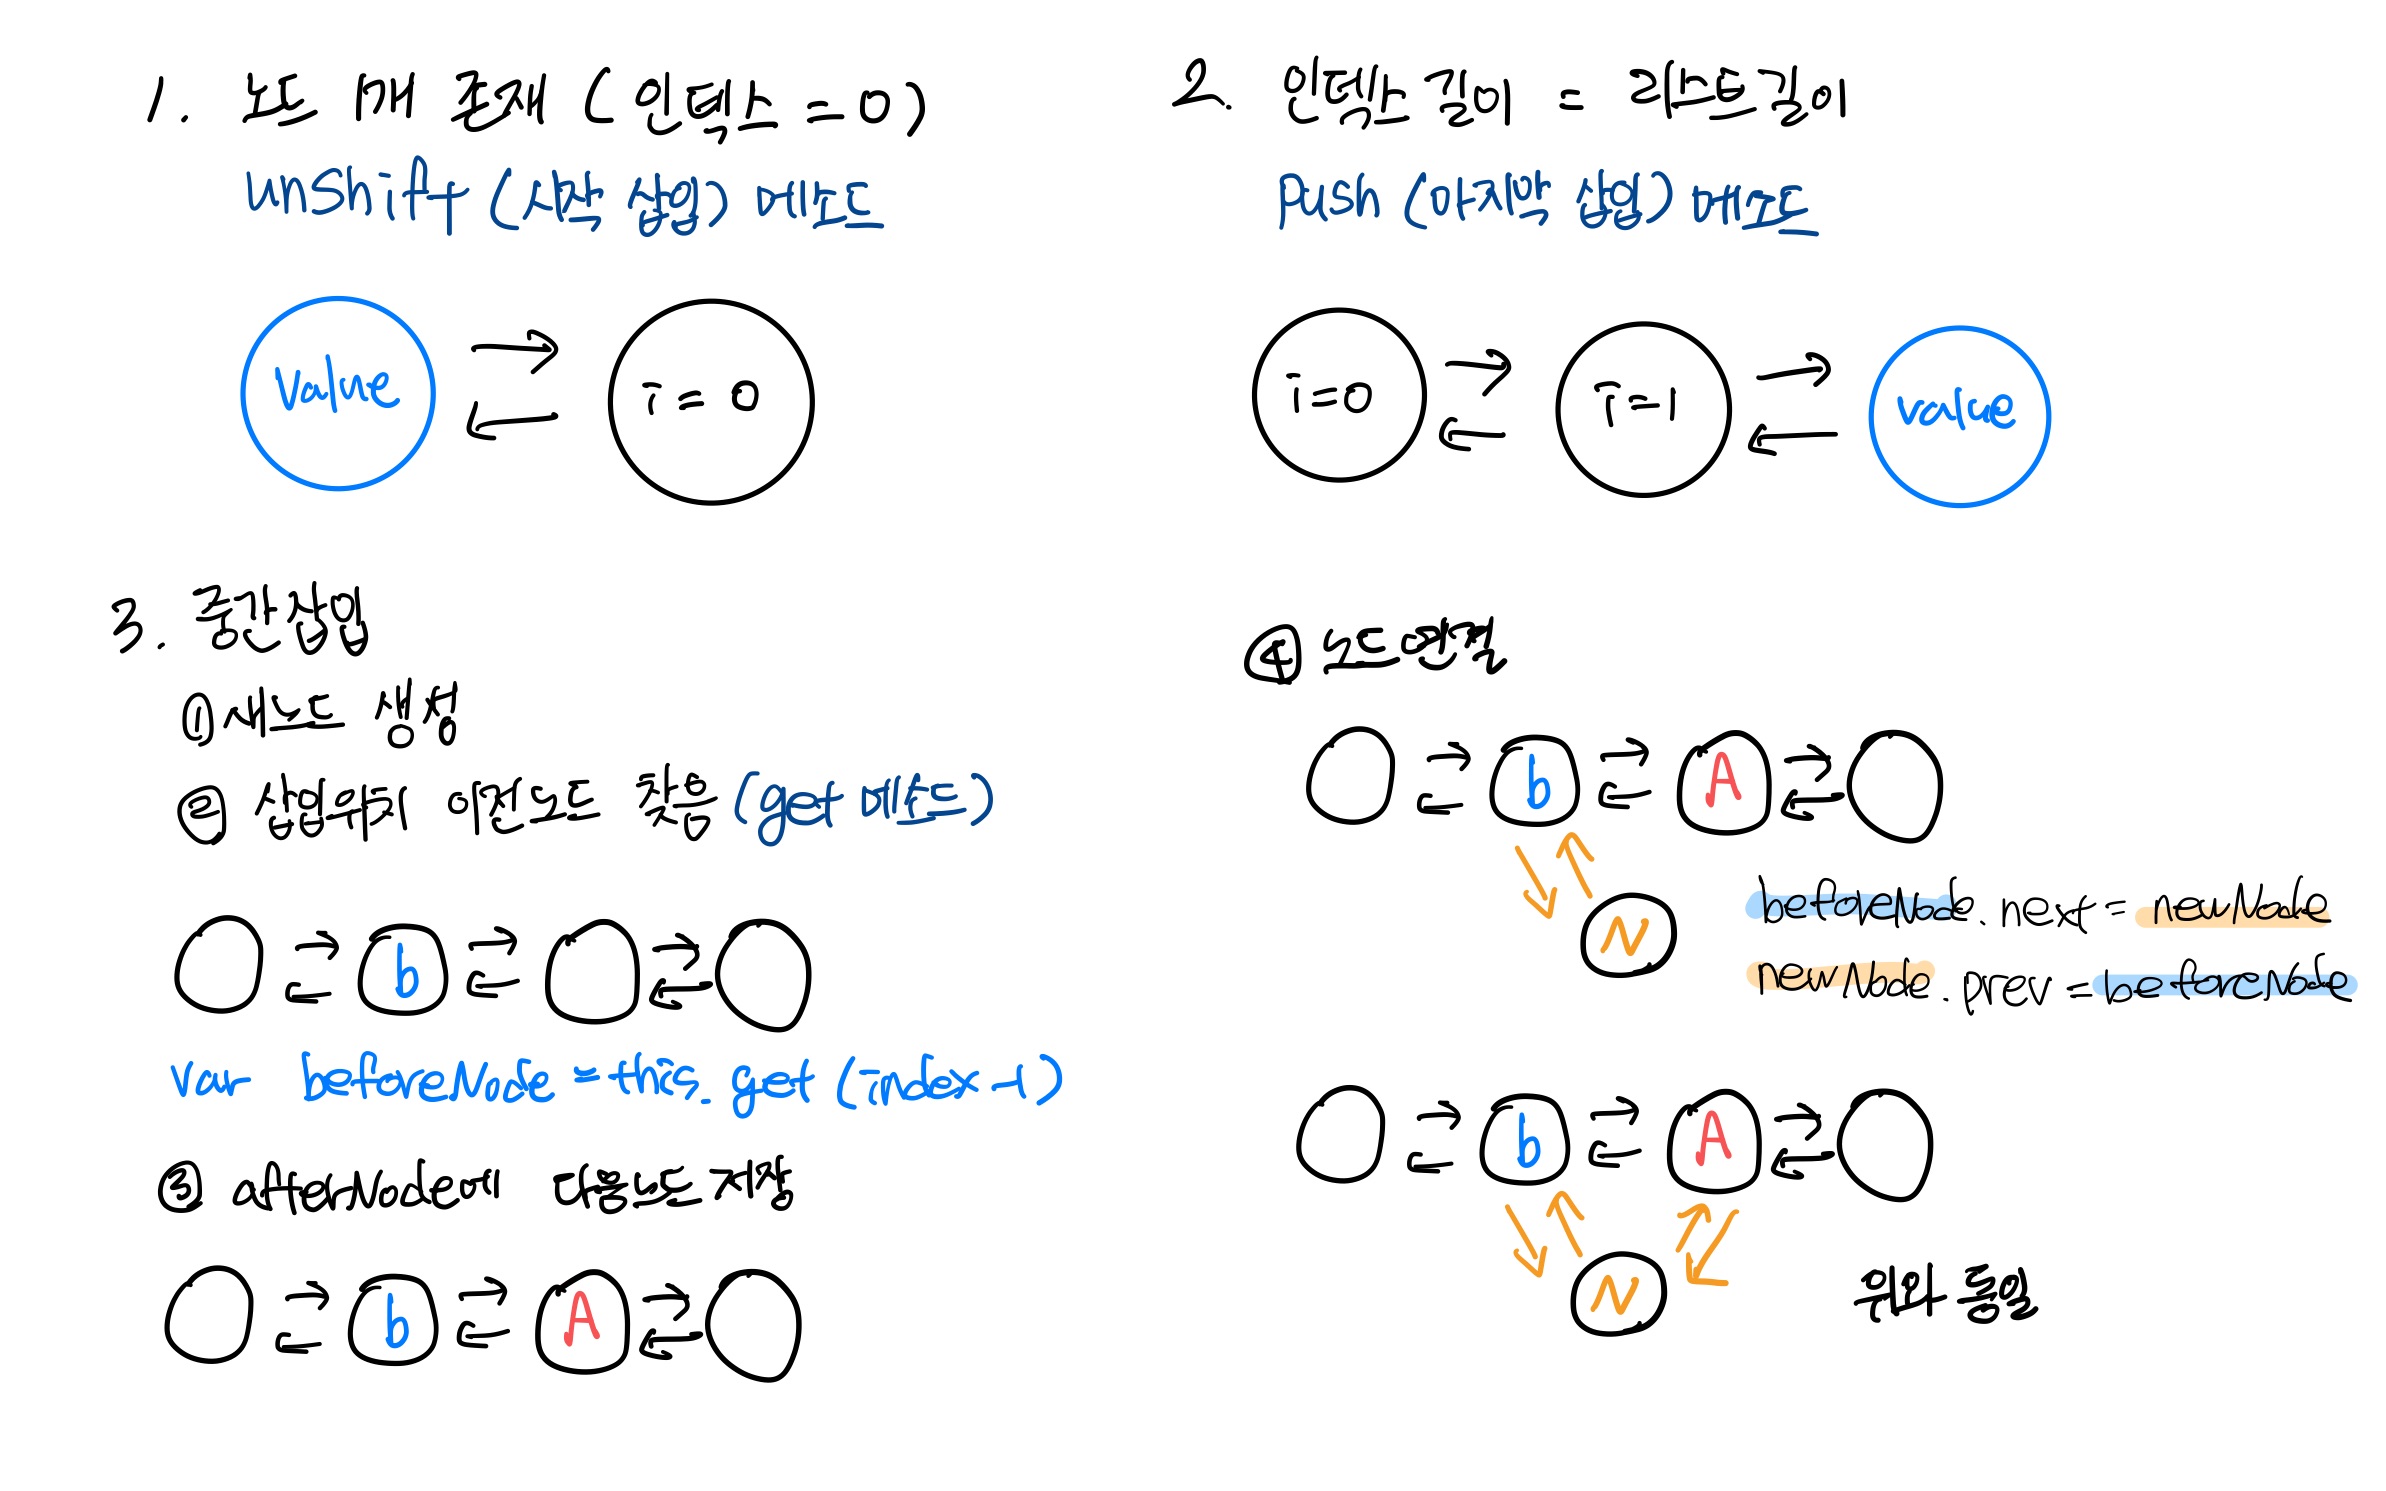 1. 노드 매 존재 (인덱스 = 0)
unshift (시작 삽입) 메서드
value
i = 0
2. 인덱스 길이 = 리스트 길이
push (마지막 삽입) 메서드
i=0
i=1
value
3. 중간삽입
① 새노드 생성
② 삽입위치 이전노드 찾음 (get 메서드)
b
var beforeNode = this. get (index-1)
③ afterNode에 다음노드 저장
b
A
④ 노드 연결
b
A
N
beforeNode. next = newNode
newNode. prev = beforeNode
b
A
N
위와 동일